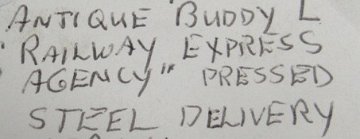 ANTIQUE BUDDY L
"RAILWAY EXPRESS
AGENCY" PRESSED
STEEL DELIVERY